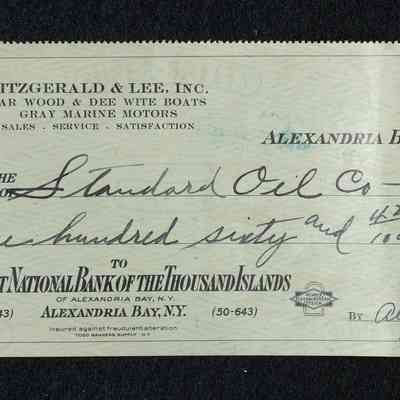 ITZGERALD & LEE, INC.
AR WOOD & DEE WITE BOATS
GRAY MARINE MOTORS
SALES - SERVICE - SATISFACTION
ALEXANDRIA B
HE
OF Standard Oil Co —
e hundred sixty and 42/100
TO
T NATIONAL BANK OF THE THOUSAND ISLANDS
OF ALEXANDRIA BAY, N.Y.
43) ALEXANDRIA BAY, N.Y. (50-643)
BY
Insured against fraudulent alteration
TODD SANDERS SUPPLY N.Y.